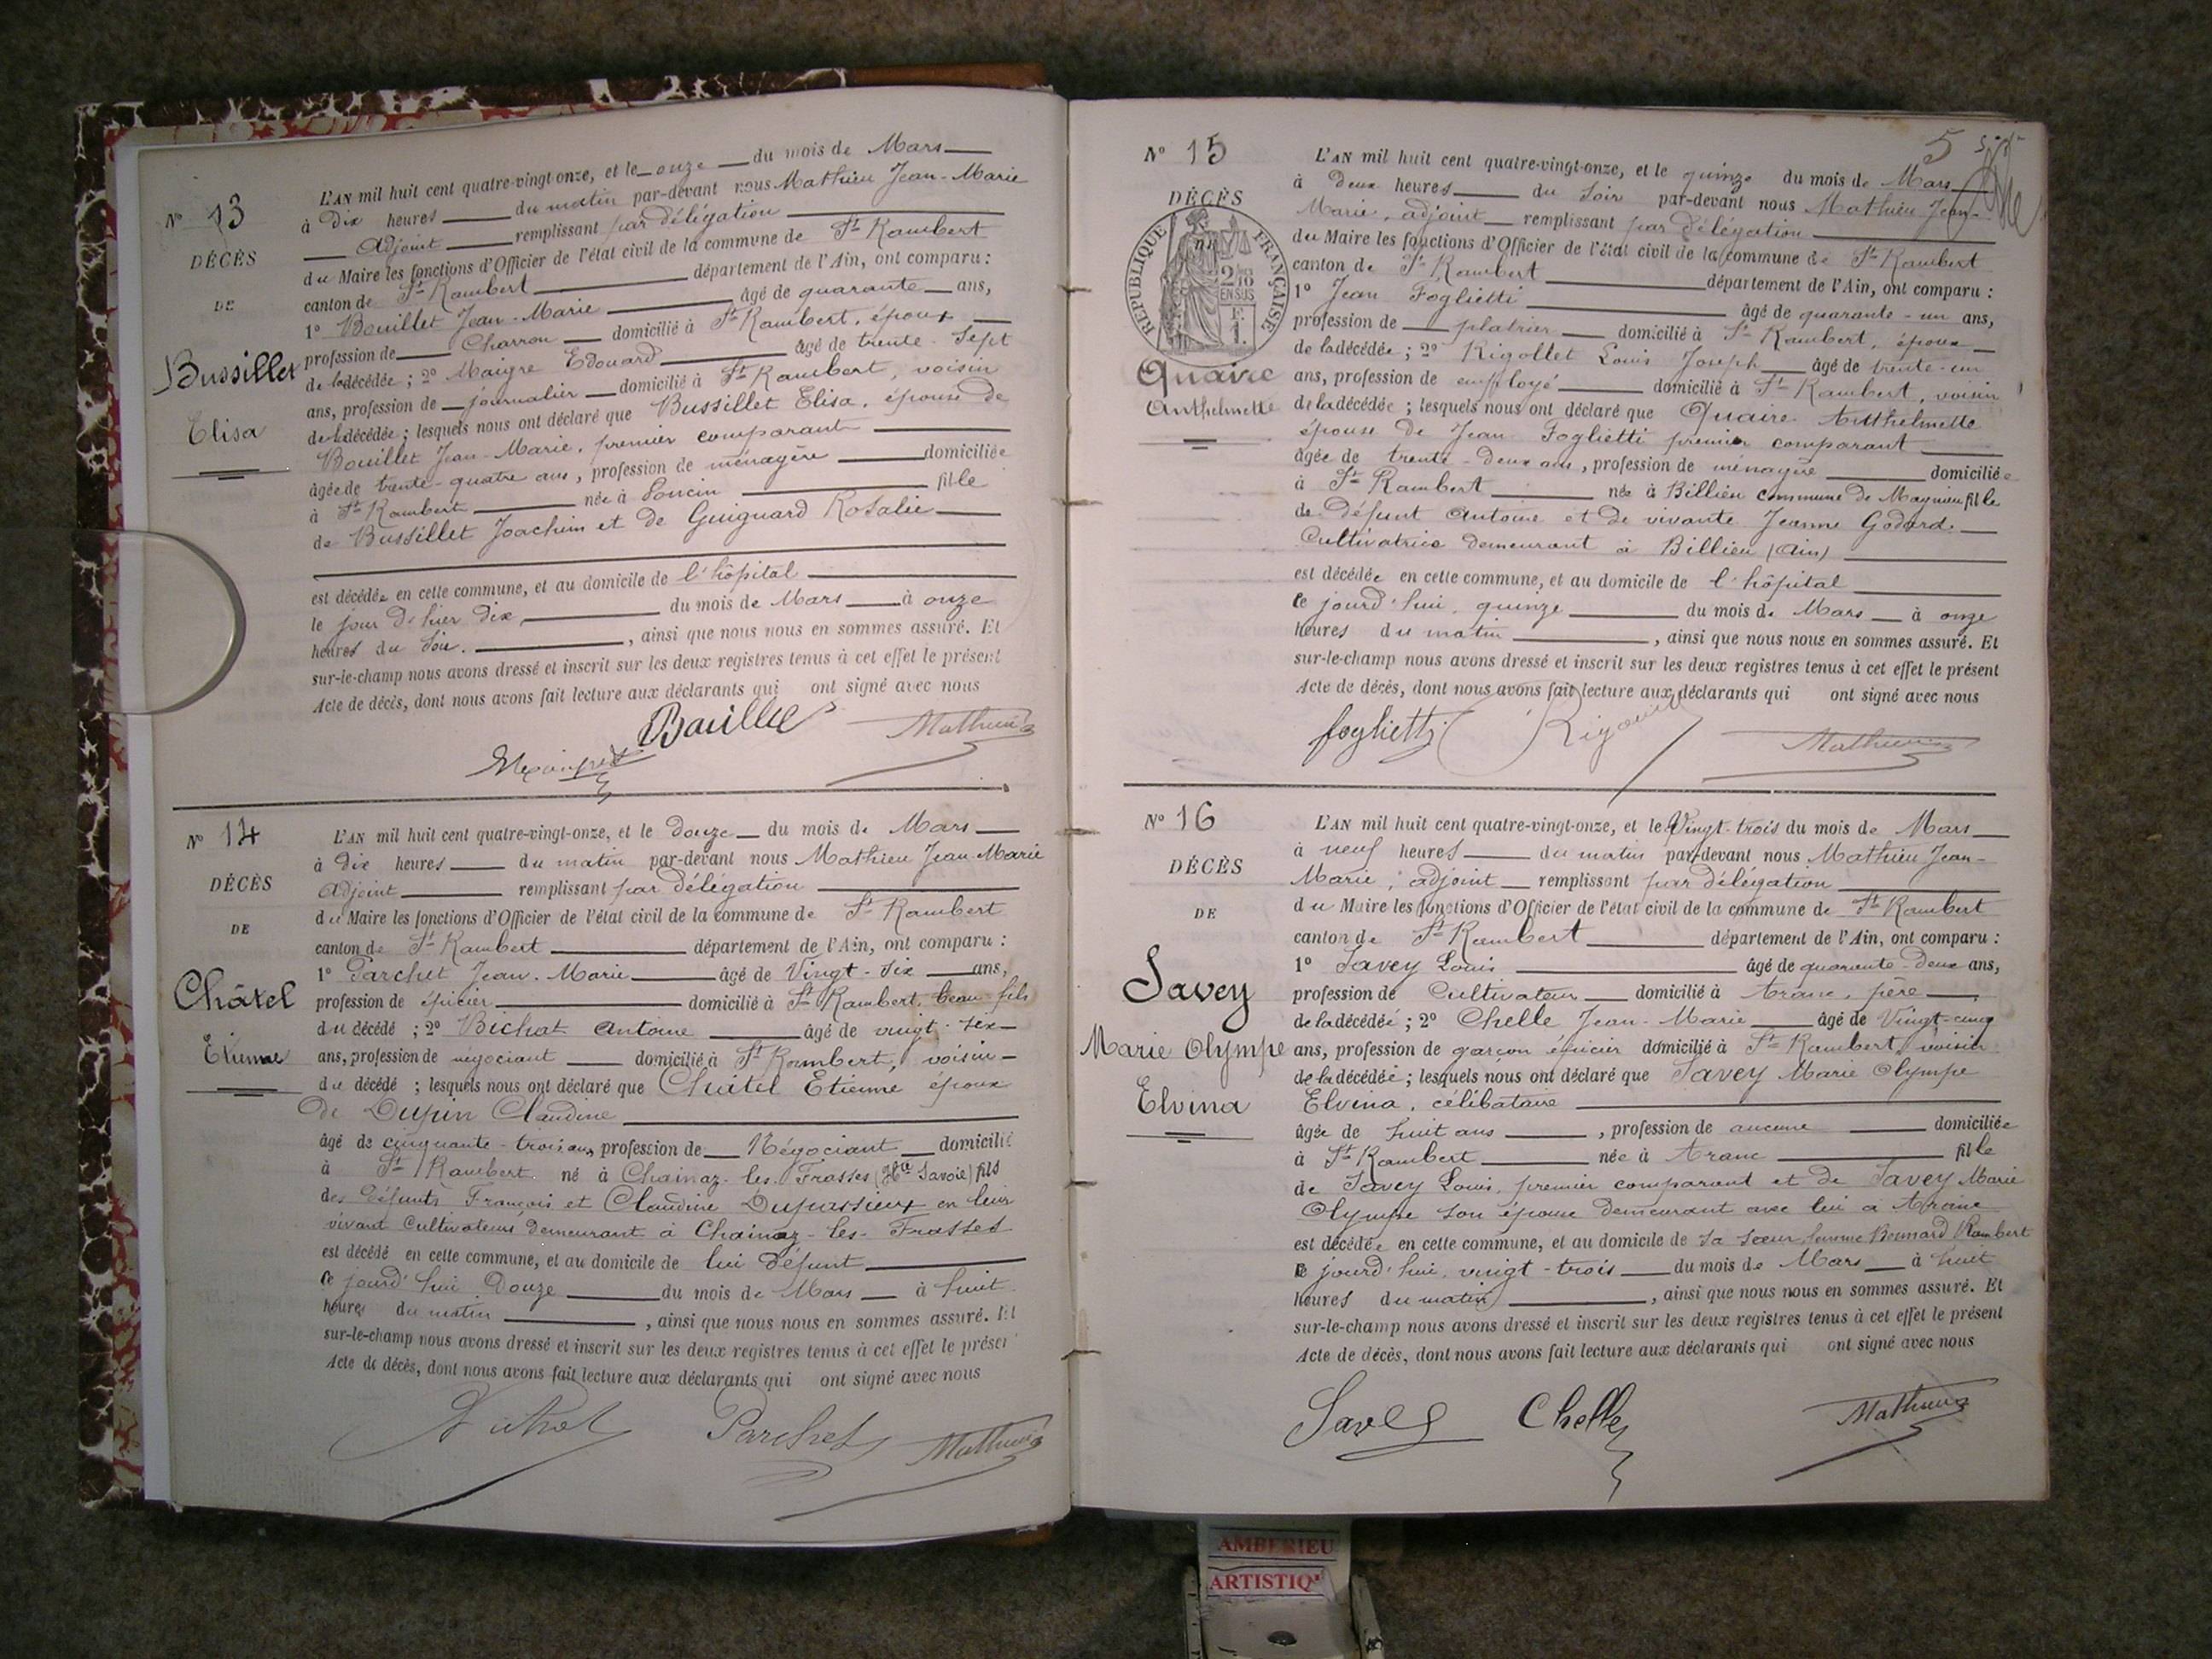 N° 13
DÉCÈS
DE
Bussillet
Elisa
L'AN mil huit cent quatre-vingt-onze, et le onze du mois de Mars
à Dix heures du matin par-devant nous Mathieu Jean-Marie
Adjoint remplissant par délégation
du Maire les fonctions d'Officier de l'état civil de la commune de St Rambert
canton de St Rambert département de l'Ain, ont comparu :
1° Bouillet Jean-Marie âgé de quarante ans,
profession de Charron domicilié à St Rambert, époux
de la décédée ; 2° Maigre Edouard âgé de trente-sept
ans, profession de journalier domicilié à St Rambert, voisin
de la décédée ; lesquels nous ont déclaré que Bussillet Elisa, épouse de
Bouillet Jean-Marie, premier comparant
âgée de trente-quatre ans, profession de ménagère domiciliée
à St Rambert née à Loncin fille
de Bussillet Joachim et de Guignard Rosalie
est décédée en cette commune, et au domicile de l'hôpital
le jour d'hier dix du mois de Mars à onze
heures du soir. , ainsi que nous nous en sommes assuré. Et
sur-le-champ nous avons dressé et inscrit sur les deux registres tenus à cet effet le présent
Acte de décès, dont nous avons fait lecture aux déclarants qui ont signé avec nous
Bouillet Mathieu
N° 14
DÉCÈS
DE
Châtel
Etienne
L'AN mil huit cent quatre-vingt-onze, et le Douze du mois de Mars
à Dix heures du matin par-devant nous Mathieu Jean Marie
Adjoint remplissant par délégation
du Maire les fonctions d'Officier de l'état civil de la commune de St Rambert
canton de St Rambert département de l'Ain, ont comparu :
1° Parchet Jean-Marie âgé de Vingt-six ans,
profession de épicier domicilié à St Rambert, beau fils
du décédé ; 2° Bichat Antoine âgé de vingt-six
ans, profession de négociant domicilié à St Rambert, voisin
du décédé ; lesquels nous ont déclaré que Châtel Etienne époux
De Dupin Claudine
âgé de cinquante-trois ans, profession de Négociant domicilié
à St Rambert né à Chainaz-les-Frasses (Hte Savoie) fils
des défunts François et Claudine Dupassieux en leur
vivant Cultivateurs demeurant à Chainaz-les-Frasses
est décédé en cette commune, et au domicile de lui défunt
ce jourd'hui Douze du mois de Mars à huit
heures du matin , ainsi que nous nous en sommes assuré. Et
sur-le-champ nous avons dressé et inscrit sur les deux registres tenus à cet effet le présen
Acte de décès, dont nous avons fait lecture aux déclarants qui ont signé avec nous
Bichat Parchet Mathieu
5
N° 15
DÉCÈS
RÉPUBLIQUE FRANÇAISE
2/10
EN SUS
Quaire
Anthelmette
L'AN mil huit cent quatre-vingt-onze, et le quinze du mois de Mars
à Deux heures du soir par-devant nous Mathieu Jean-
Marie, adjoint remplissant par délégation
du Maire les fonctions d'Officier de l'état civil de la commune de St Rambert
canton de St Rambert département de l'Ain, ont comparu :
1° Jean Foglietti âgé de quarante-un ans,
profession de platrier domicilié à St Rambert, époux
de la décédée ; 2° Rigollet Louis Joseph âgé de trente-un
ans, profession de employé domicilié à St Rambert, voisin
de la décédée ; lesquels nous ont déclaré que Quaire Anthelmette
épouse de Jean Foglietti premier comparant
âgée de trente-deux ans, profession de ménagère domiciliée
à St Rambert née à Billieu commune de Magnieu fille
de défunt Antoine et de vivante Jeanne Godard
Cultivatrice demeurant à Billieu (Ain)
est décédée en cette commune, et au domicile de l'hôpital
ce jourd'hui quinze du mois de Mars à onze
heures du matin , ainsi que nous nous en sommes assuré. Et
sur-le-champ nous avons dressé et inscrit sur les deux registres tenus à cet effet le présent
Acte de décès, dont nous avons fait lecture aux déclarants qui ont signé avec nous
foglietti Mathieu
N° 16
DÉCÈS
DE
Savey
Marie Olympe
Elvina
L'AN mil huit cent quatre-vingt-onze, et le Vingt-trois du mois de Mars
à neuf heures du matin par-devant nous Mathieu Jean-
Marie, adjoint remplissant par délégation
du Maire les fonctions d'Officier de l'état civil de la commune de St Rambert
canton de St Rambert département de l'Ain, ont comparu :
1° Savey Louis âgé de quarante-deux ans,
profession de Cultivateur domicilié à Aranc, père
de la décédée ; 2° Chelle Jean-Marie âgé de Vingt-cinq
ans, profession de garçon épicier domicilié à St Rambert, voisin
de la décédée ; lesquels nous ont déclaré que Savey Marie Olympe
Elvina, célibataire
âgée de huit ans , profession de aucune domiciliée
à St Rambert née à Aranc fille
de Savey Louis, premier comparant et de Savey Marie
Olympe son épouse demeurant avec lui à Aranc
est décédée en cette commune, et au domicile de sa sœur, femme Bonnard Rambert
ce jourd'hui, vingt-trois du mois de Mars à huit
heures du matin , ainsi que nous nous en sommes assuré. Et
sur-le-champ nous avons dressé et inscrit sur les deux registres tenus à cet effet le présent
Acte de décès, dont nous avons fait lecture aux déclarants qui ont signé avec nous
Savey Chelle Mathieu
AMBERIEU
ARTISTIQ